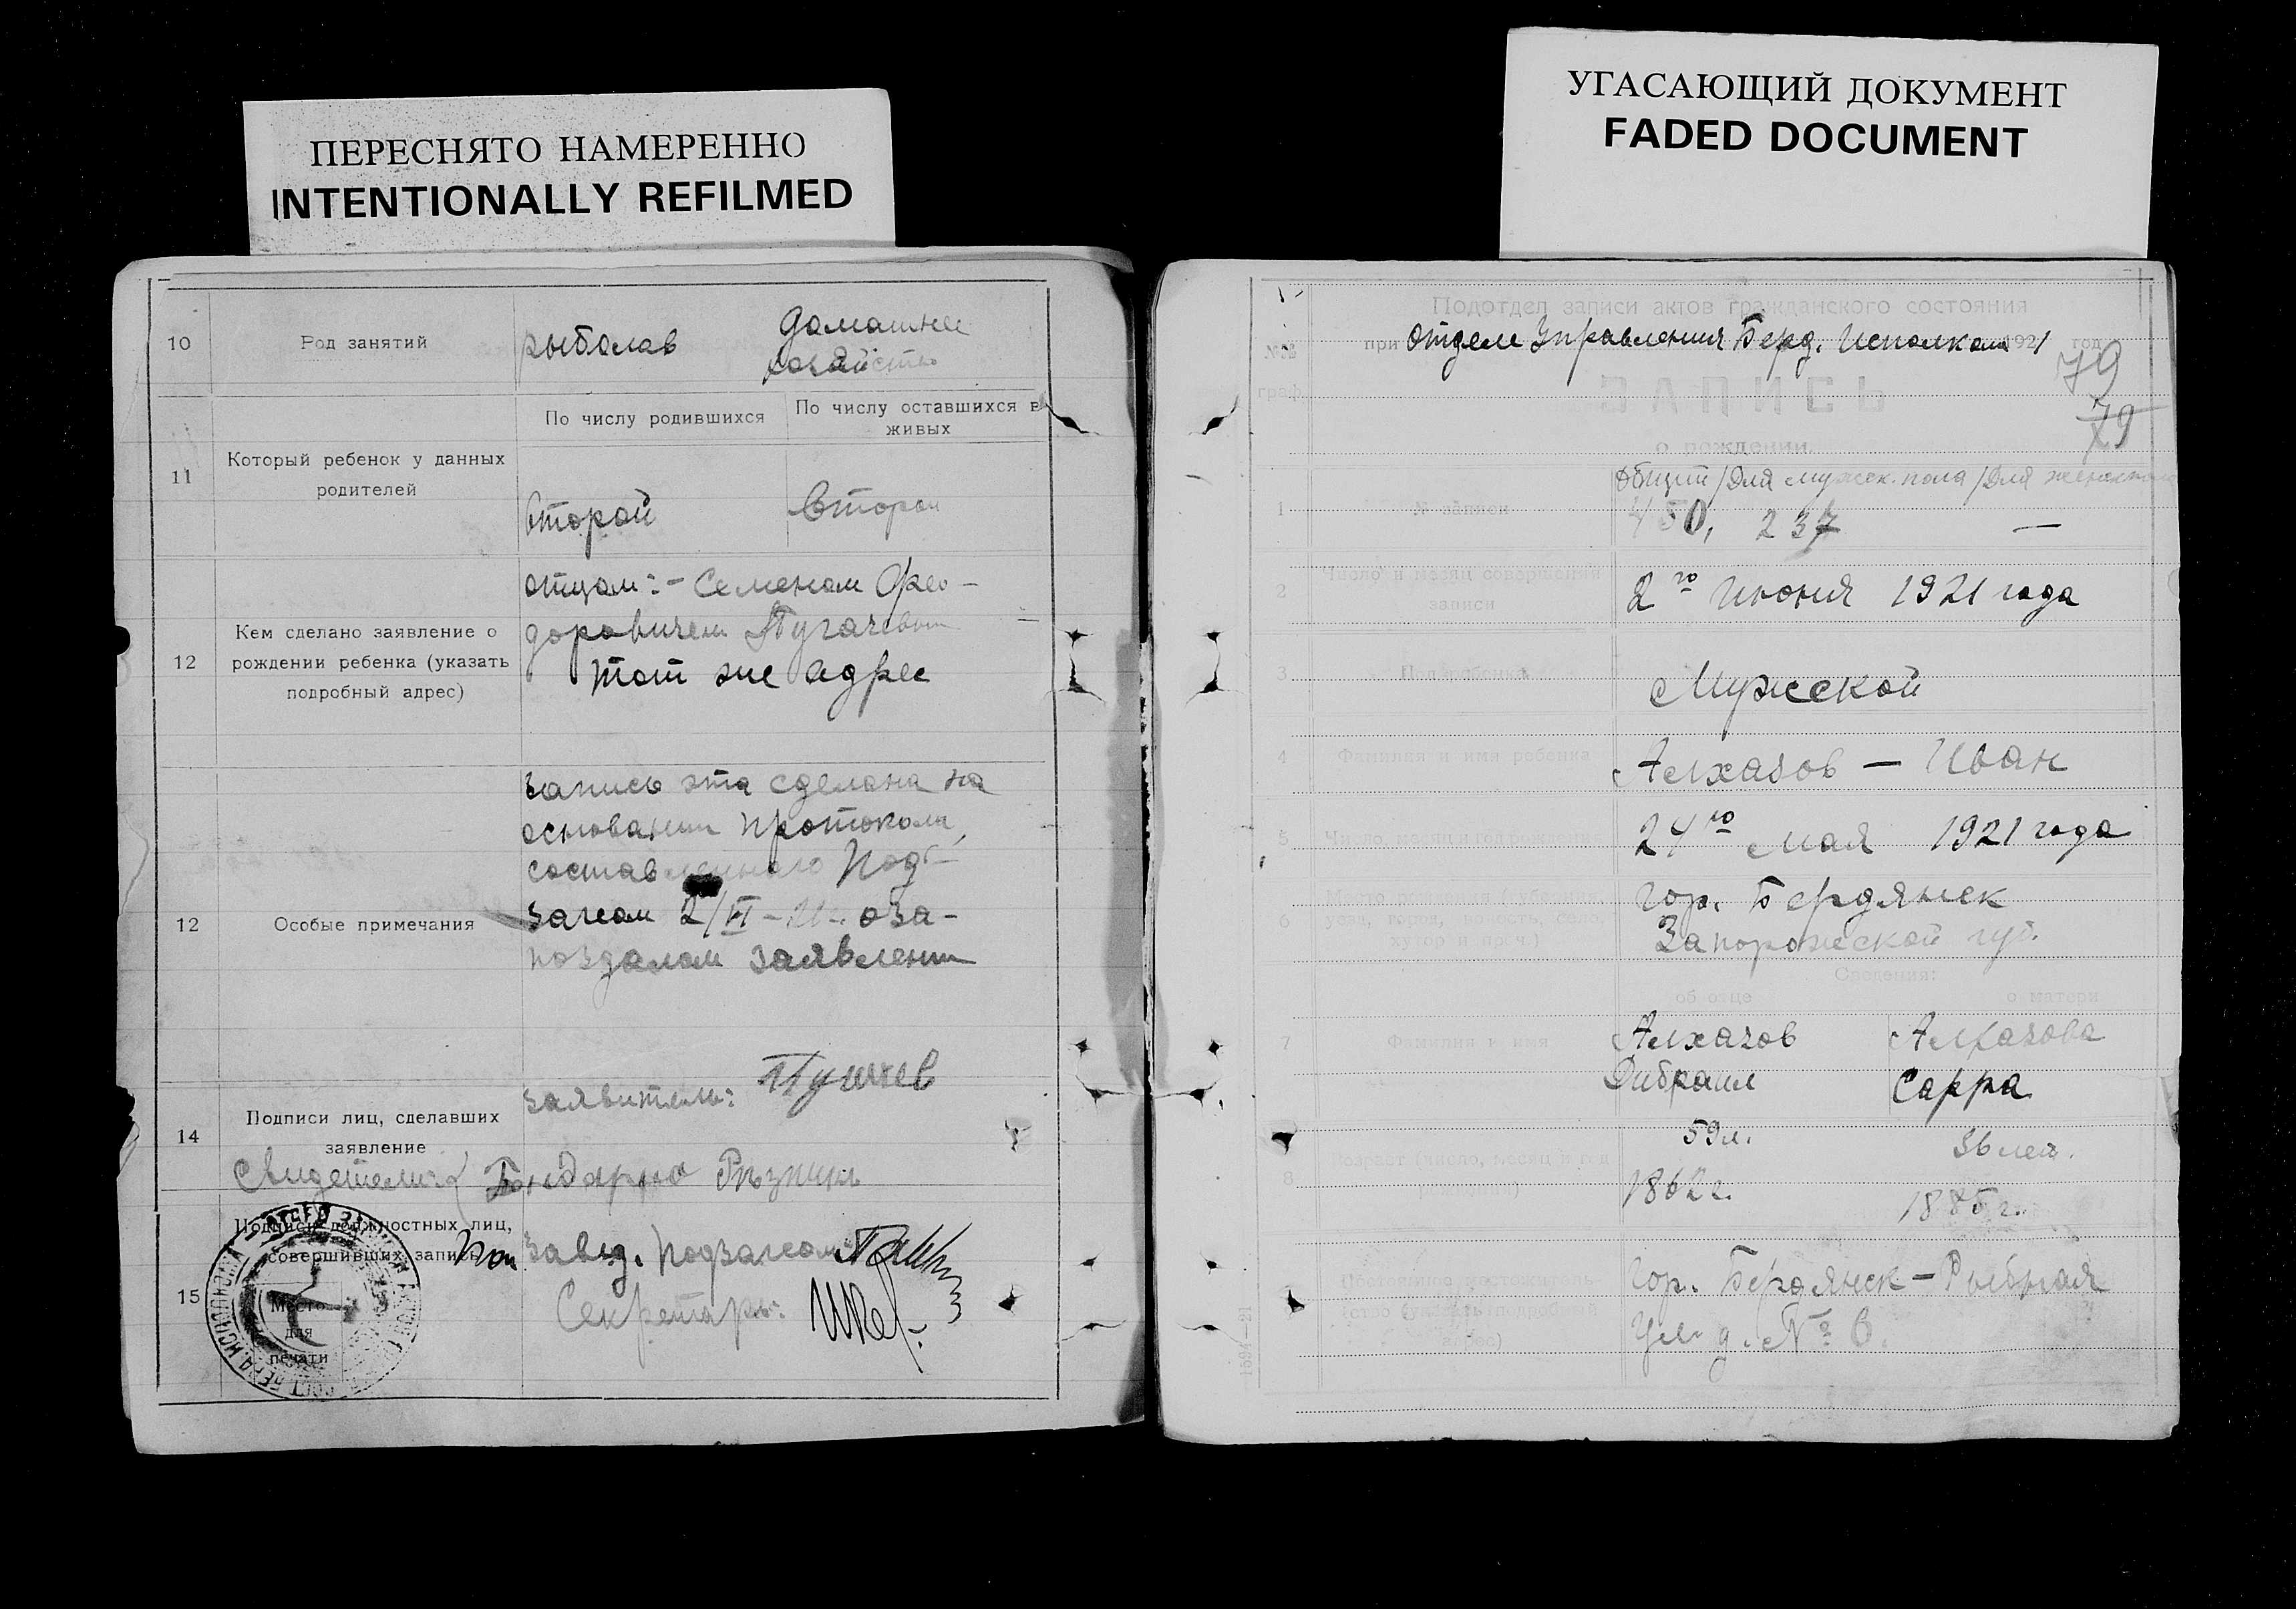 ПЕРЕСНЯТО НАМЕРЕННО
INTENTIONALLY REFILMED
10
Род занятий
рыболав
домашнее
хозяйство
По числу родившихся
По числу оставшихся в живых
11
Который ребенок у данных
родителей
второй
второй
12
Кем сделано заявление о
рождении ребенка (указать
подробный адрес)
отцом:- Семеном Фео-
доровичем Пугачевым
тот же адрес
12
Особые примечания
запись эта сделана на
основании протокола,
составленного Под-
загсом 2/VI-21г. о за-
поздалом заявлении
14
Подписи лиц, сделавших
заявление
заявитель:
Свидетели:
15
Подписи должностных лиц,
совершивших запись
Место
для
печати
Завед. Подзагсом
Секретарь:
УГАСАЮЩИЙ ДОКУМЕНТ
FADED DOCUMENT
Подотдел записи актов гражданского состояния
при отделе Управления Берд. Исполкома 1921 год
79
79
граф.
ЗАПИСЬ
о рождении.
1
№ записи
общий/для мужск. пола/для женского
450, 237 —
2
Число и месяц совершения
записи
2го Июня 1921 года
3
Пол ребенка
Мужской
4
Фамилия и имя ребенка
Алхазов — Иван
5
Число, месяц и год рождения
24го мая 1921 года
6
хутор и проч.)
гор. Бердянск
Запорожской губ.
Сведения:
об отце
о матери
7
Фамилия и имя
Алхазов
Алхазова
Дибраил
Сарра
8
Возраст (число, месяц и год
рождения)
59л.
36 лет.
1862г.
1885г.
гор. Бердянск — Рыбная
Ул. д. № 6.
адрес)
1594—21